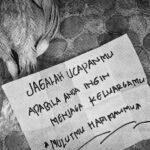 JAGALAH UCAPANMU
APABILA ANDA INGIN
MENJAGA KELUARGAMU
#MULUTMU HARIMAUMU#